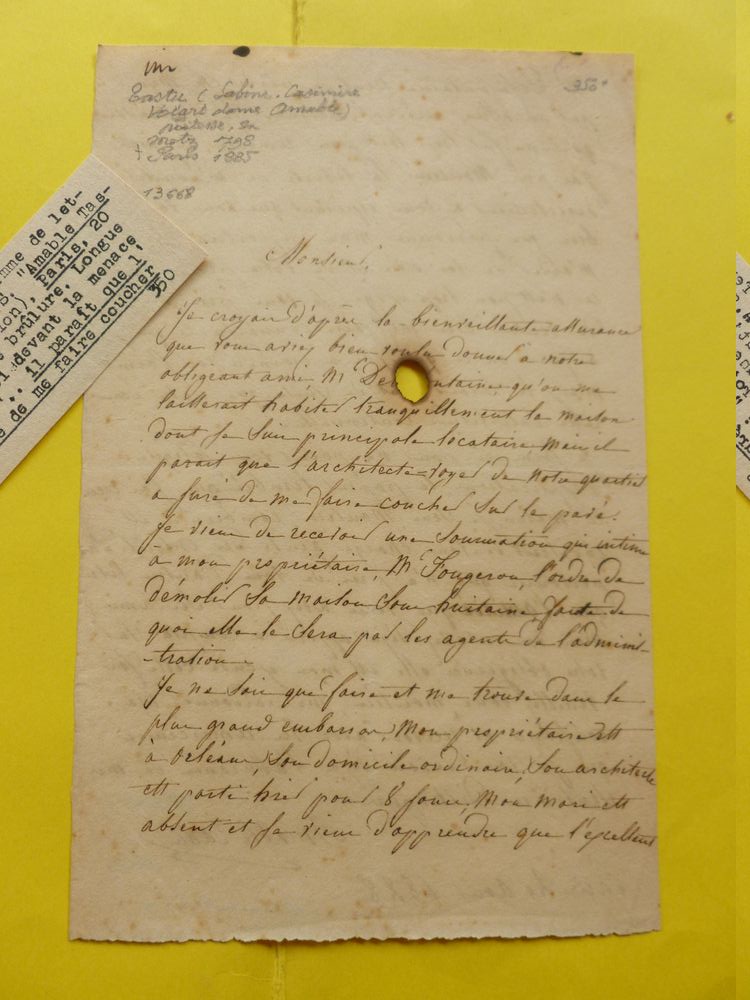 350+
Tastu (Sabine-Casimire
Voïart dame Amable)
poétesse, en
Metz 1798
+ Paris 1885
13668
mme de let-
"Amable Tas-
ion), Paris, 20
brûlure. Longue
devant la menace
... il paraît que l'
é de me faire coucher
350
Monsieur,
Je croyais d'après la bienveillante assurance
que vous aviez bien voulu donner à notre
obligeant ami, Mr Des ntaines, qu'on me
laisserait habiter tranquillement la maison
dont je suis principale locataire, mais il
parait que l'architecte=voyer de notre quartier
a juré de me faire coucher sur le pavé.
Je viens de recevoir une sommation qui intime
à mon propriétaire, Mr Fougerou, l'ordre de
démolir sa maison sous huitaine, faute de
quoi elle le sera par les agents de l'adminis-
-tration.
Je ne sais que faire et me trouve dans le
plus grand embarras, mon propriétaire est
à Orléans, son domicile ordinaire, son architecte
est parti hier pour 8 jours, mon mari est
absent et je viens d'apprendre que l'excellent